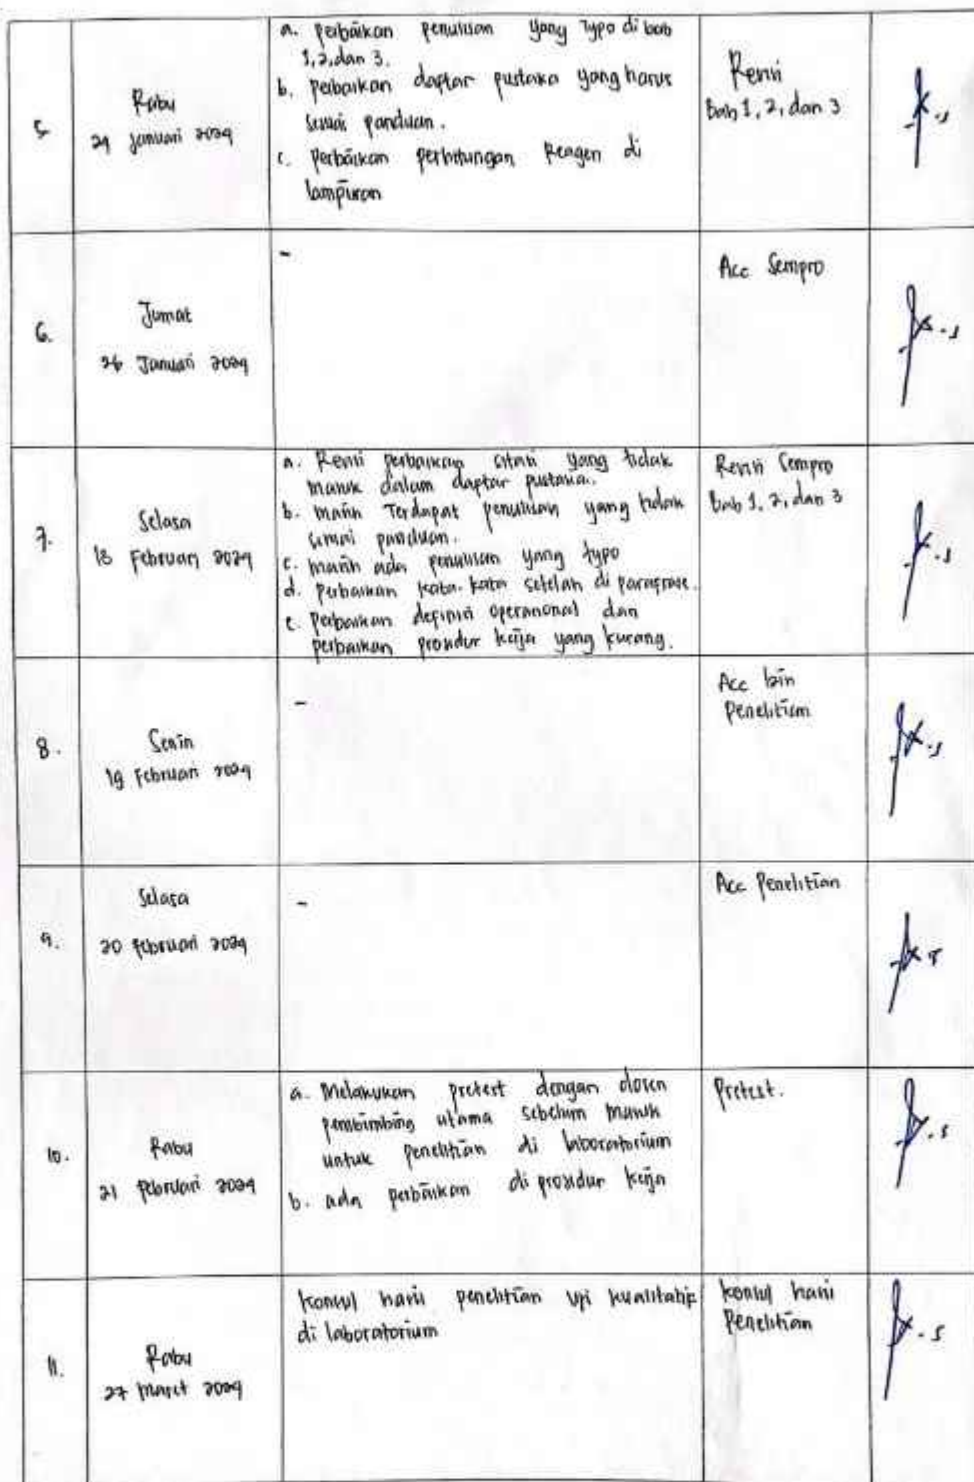 5.
Rabu
24 Januari 2024
a. perbaikan penulisan yang typo di bab
1,2,dan 3.
b. perbaikan daftar pustaka yang harus
sesuai panduan.
c. perbaikan perhitungan Reagen di
lampiran
Revisi
Bab 1, 2, dan 3
6.
Jumat
26 Januari 2024
-
Acc Sempro
7.
Selasa
13 Februari 2024
a. Revisi perbaikan sitasi yang tidak
masuk dalam daftar pustaka.
b. masih Terdapat penulisan yang tidak
sesuai panduan.
c. masih ada penulisan yang typo
d. perbaikan kata-kata setelah di parafrase.
e. perbaikan definisi operasional dan
perbaikan prosedur kerja yang kurang.
Revisi Sempro
Bab 1, 2, dan 3
8.
Senin
19 Februari 2024
-
Acc Izin
Penelitian
9.
Selasa
20 Februari 2024
-
Acc Penelitian
10.
Rabu
21 Februari 2024
a. Melakukan pretest dengan dosen
pembimbing utama sebelum masuk
untuk penelitian di laboratorium
b. ada perbaikan di prosedur kerja
Pretest.
11.
Rabu
27 Maret 2024
Konsul hasil penelitian uji kualitatif
di laboratorium
konsul hasil
Penelitian